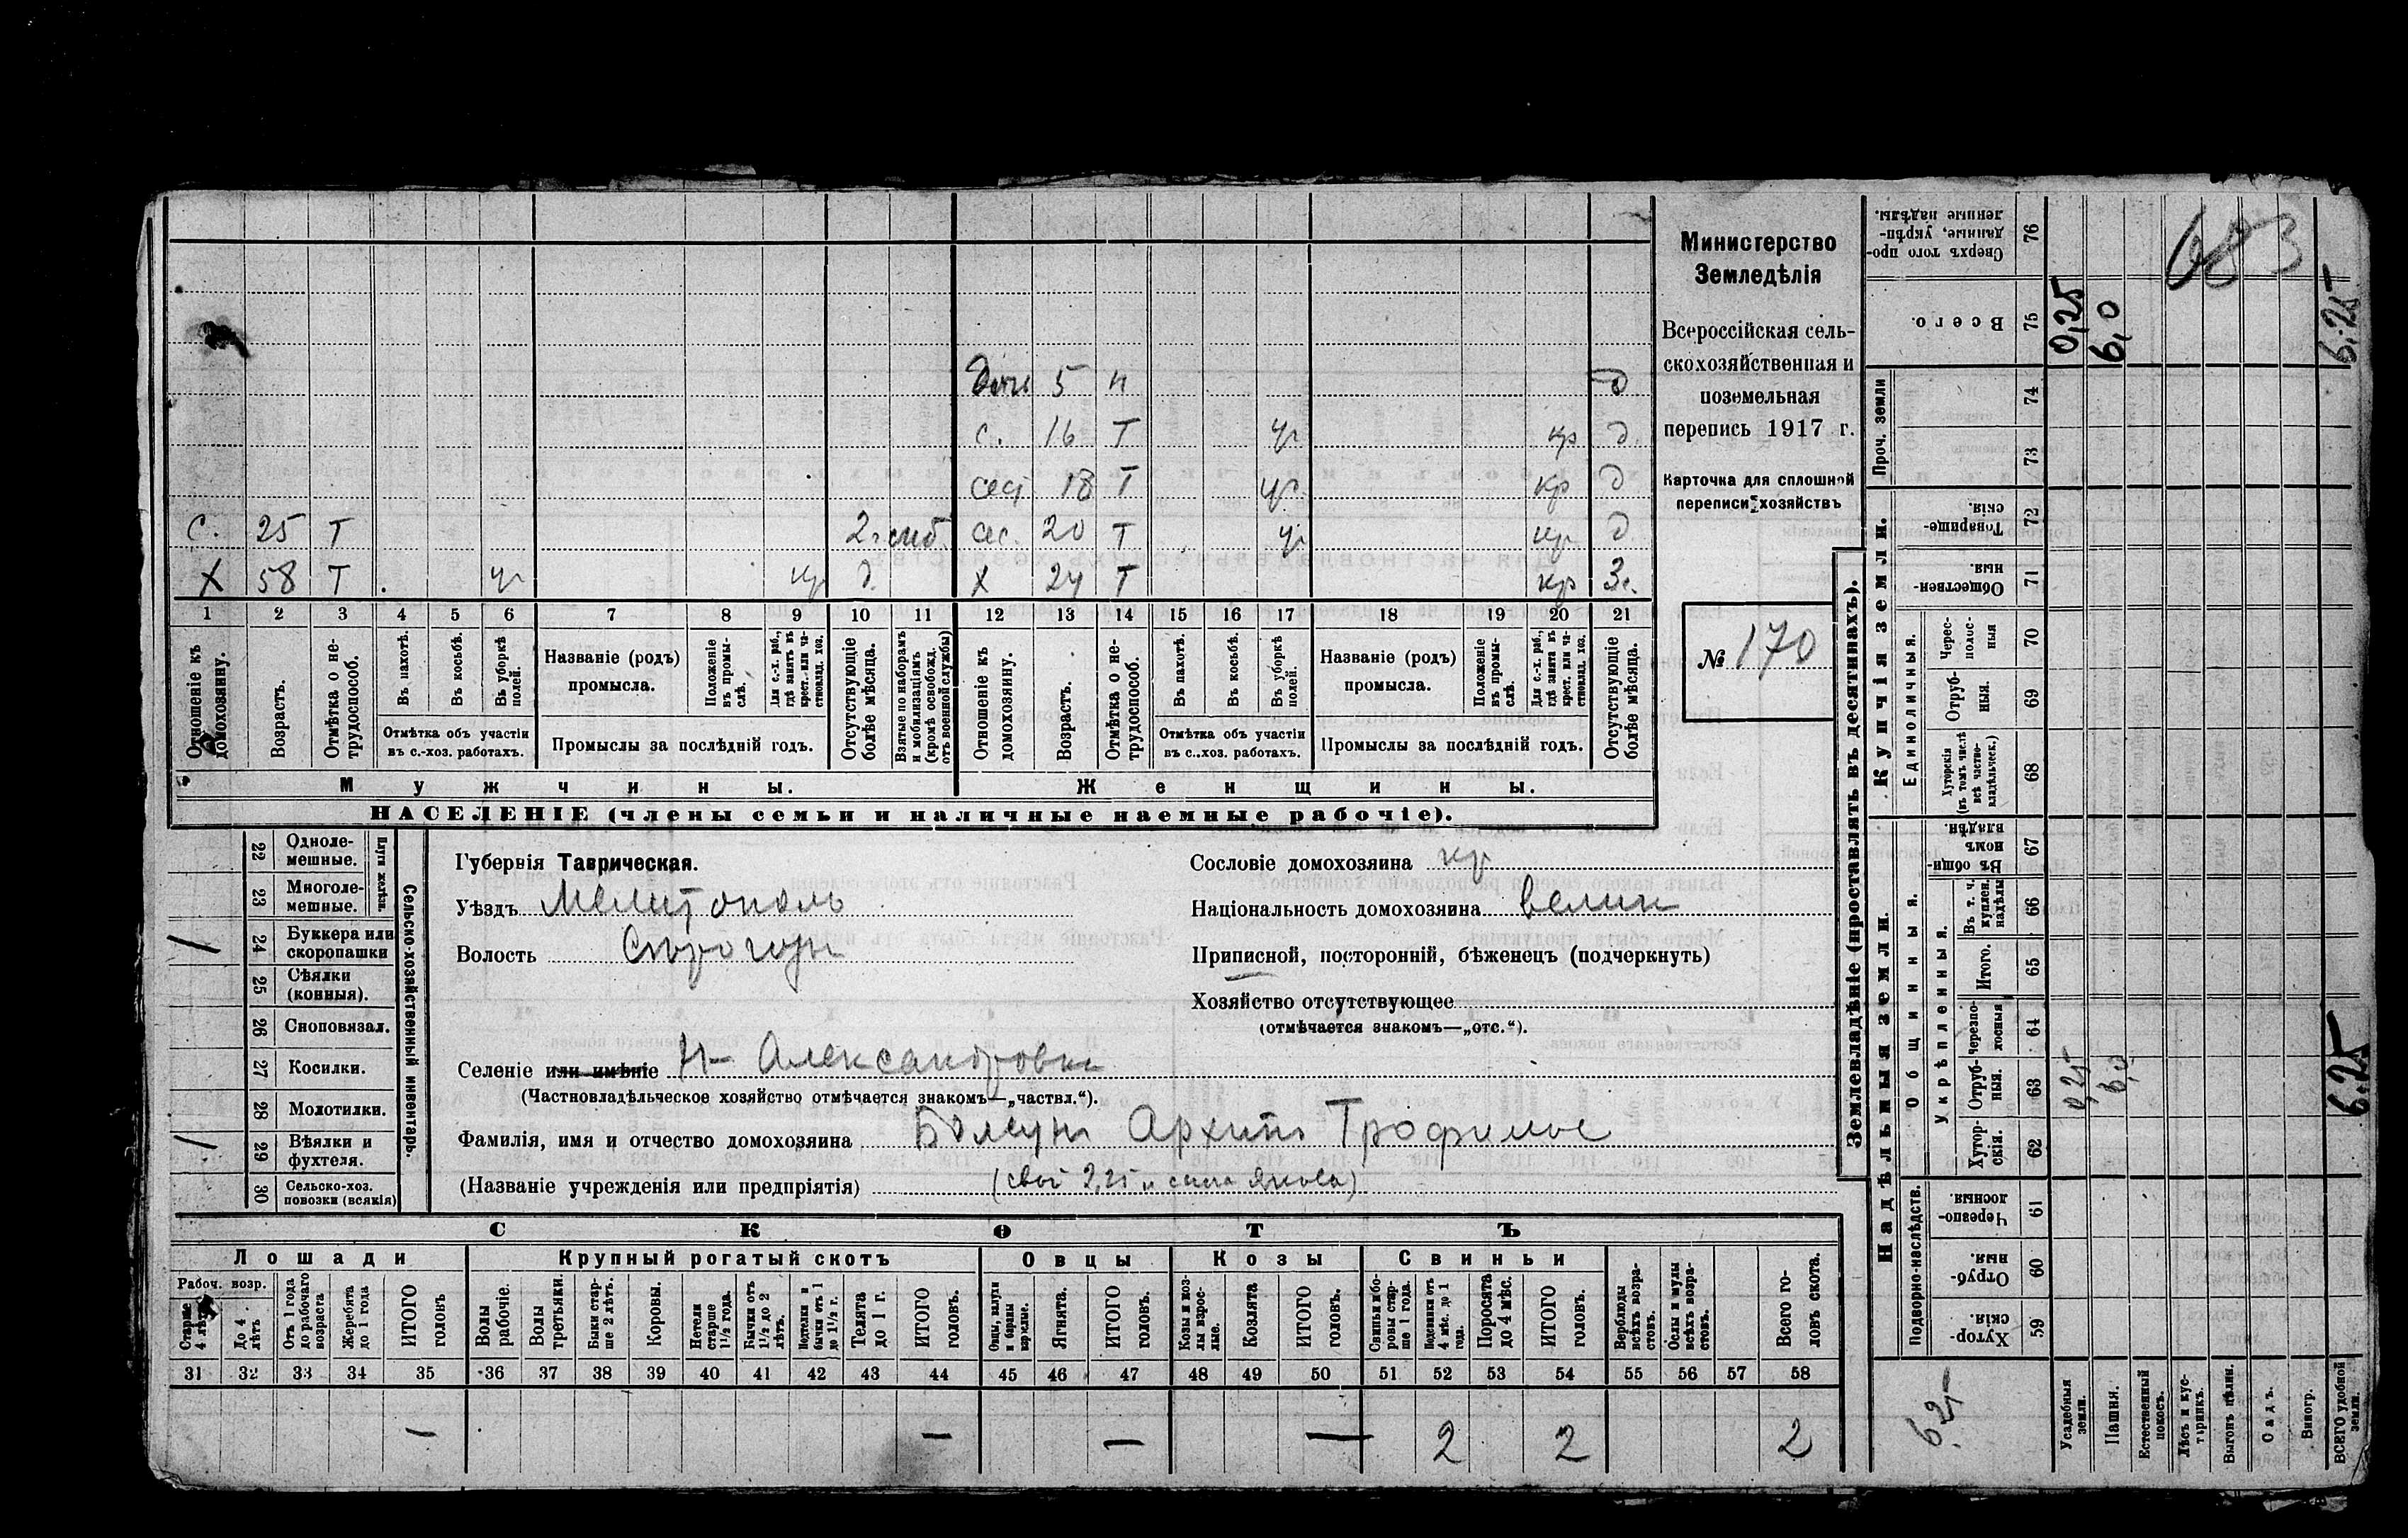 683
Министерство
Земледѣлія
Всероссійская сель-
скохозяйственная и
поземельная
перепись 1917 г.
Карточка для сплошной
переписи хозяйствъ
№ 170
дочь 5 н д
с. 16 Т ур кр д
сест 18 Т ур кр д
с. 25 Т 2 г. сес. 20 Т ур кр д
Х 58 Т ур кр д. Х 24 Т кр
1 2 3 4 5 6 7 8 9 10 11 12 13 14 15 16 17 18 19 20 21
Отношеніе къ домохозяину.
Возрастъ.
Отмѣтка о не-трудоспособ.
Въ пахотѣ.
Въ косьбѣ.
Въ уборкѣ полей.
Отмѣтка объ участіи
въ с.-хоз. работахъ.
Названіе (родъ)
промысла.
Положеніе въ промы-слѣ.
Для с.-х. раб., гдѣ занятъ въ крест. или ча-стновлад. хоз.
Промыслы за послѣдній годъ.
Отсутствующіе болѣе мѣсяца.
Взятые по наборамъ и мобилизаціямъ (кромѣ освобожд. отъ военной службы)
Отношеніе къ домохозяину.
Возрастъ.
Отмѣтка о не-трудоспособ.
Въ пахотѣ.
Въ косьбѣ.
Въ уборкѣ полей.
Отмѣтка объ участіи
въ с.-хоз. работахъ.
Названіе (родъ)
промысла.
Положеніе въ промы-слѣ.
Для с.-х. раб., гдѣ занята въ крест. или ча-стновлад. хоз.
Промыслы за послѣдній годъ.
Отсутствующіе болѣе мѣсяца.
Мужчины.
Женщины.
НАСЕЛЕНІЕ (члены семьи и наличные наемные рабочіе).
Сельско-хозяйственный инвентарь.
Плуги желѣзн.
22 Одноле-мешные.
23 Многоле-мешные.
/ 24 Буккера или скоропашки
25 Сѣялки (конныя).
26 Сноповязал.
27 Косилки.
28 Молотилки.
/ 29 Вѣялки и фухтеля.
30 Сельско-хоз. повозки (всякія)
Губернія Таврическая.
Уѣздъ Мелитополь
Волость Сѣрогозы
Селеніе или имѣніе Н-Александровка
(Частновладѣльческое хозяйство отмѣчается знакомъ—„частвл.“).
Фамилія, имя и отчество домохозяина Болсунъ Архипъ Трофимов
(Названіе учрежденія или предпріятія) (свой 2,25 и сына Якова)
Сословіе домохозяина кр
Національность домохозяина велик
Приписной, посторонній, бѣженецъ (подчеркнуть)
Хозяйство отсутствующее
(отмѣчается знакомъ—„отс.“).
СКОТЪ
Лошади
Рабоч. возр.
Старше 4 лѣтъ
До 4 лѣтъ
Отъ 1 года до рабочаго возраста
Жеребята до 1 года
ИТОГО головъ
Крупный рогатый скотъ
Волы рабочіе.
Волы третьяки.
Быки стар-ше 2 лѣтъ.
Коровы.
Нетели старше 1½ года.
Бычки отъ 1½ до 2 лѣтъ.
Подтелки и бычки отъ 1 до 1½ г.
Телята до 1 г.
ИТОГО головъ.
Овцы
Овцы, валухи и бараны взрослые.
Ягнята.
ИТОГО головъ.
Козы
Козы и коз-лы взрос-лые.
Козлята
ИТОГО головъ.
Свиньи
Свиньи и бо-ровы стар-ше 1 года.
Подсвинки отъ 4 мѣс. до 1 года.
Поросята до 4 мѣс.
ИТОГО головъ.
Верблюды всѣхъ возра-стовъ.
Ослы и мулы всѣхъ возра-стовъ.
Всего го-ловъ скота.
31 32 33 34 35 36 37 38 39 40 41 42 43 44 45 46 47 48 49 50 51 52 53 54 55 56 57 58
— — — — 2 2 2
Землевладѣніе (проставлять въ десятинахъ).
Надѣльныя земли.
Купчія земли.
Проч. земли
Подворно-наслѣдств.
Общинныя.
Укрѣпленныя.
Единоличныя.
Сверхъ того про-данные, укрѣп-ленные надѣлы. 76
Всего. 75 0,25 6,0 6,25
74
73
Товарище-скія 72
Обществен-ныя 71
Черес-полос-ныя 70
Отруб-ныя. 69
Хуторскія (въ томъ числѣ всѣ частно-владѣльческ.) 68
Въ общи-номъ владѣн. 67
Въ т. ч. куплен. надѣлы 66
Итого. 65 6,25
Черезпо-лосныя 64
Отруб-ныя. 63 0,25 6,0
Хутор-скія. 62
Черезпо-лосныя. 61
Отруб-ныя. 60
Хутор-скія. 59
6,25
Усадебныя земли.
Пашня.
Естественный покосъ.
Лѣсъ и кус-тарникъ.
Выгонъ цѣлин.
Садъ.
Виногр.
ВСЕГО удобной земли.